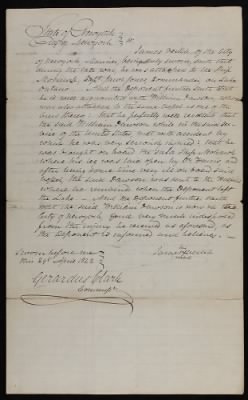 State of New York
City of New York } ss
James Quill of the City
of New York Marine, being duly sworn, saith that
during the late war, he was attached to the Ship
Mohawk, Capt Jones, Commander, on Lake
Ontario. And the Deponent further saith that
he was acquainted with William Dawson, who
was also attached to the same
he perfectly recollects that
the said William Dawson while in the actual ser-
vice of the United States met with an accident by
which he was very severely injured; that he
was brought on board the said Ship Mohawk
where his leg was laid open by Dr. and
after being some time very ill on board said
vessel, the said Dawson was sent to the Hospital
where he remained when the Deponent left
the Lake. And the Deponent further saith
that the said William Dawson is now in the
City of New York, and very much indisposed
from the injury he received as aforesaid, as
the Deponent is informed and believes.
Sworn before me
this 29th April 1822
Gerardus Clark
Commissr.
James
his
mark